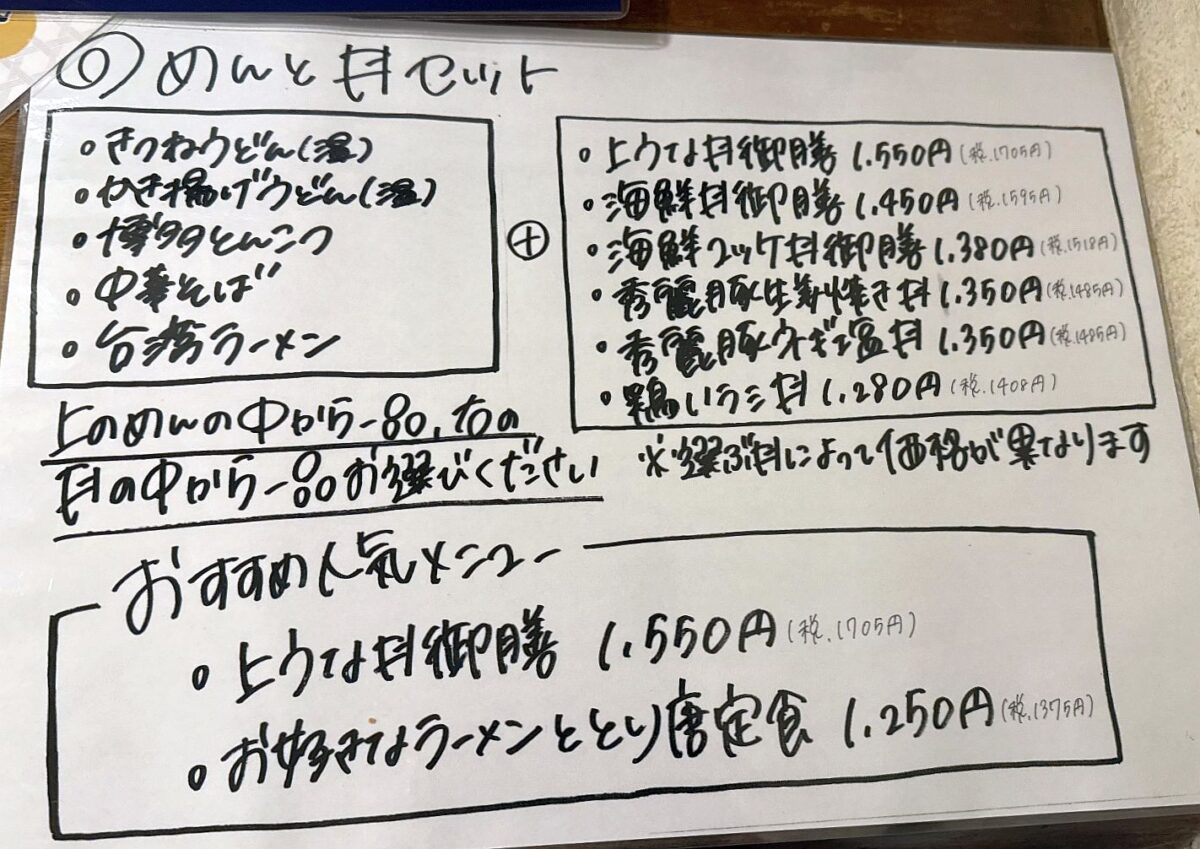 ◎めんと丼セット
・きつねうどん(温)
・かき揚げうどん(温)
・博多とんこつ
・中華そば
・台湾ラーメン
⊕
・上うな丼御膳 1.550円(税.1705円)
・海鮮丼御膳 1.450円(税.1595円)
・海鮮ユッケ丼御膳 1.380円(税.1518円)
・秀麗豚生姜焼き丼 1.350円(税.1485円)
・秀麗豚ネギ塩丼 1.350円(税.1485円)
・鶏いラミ丼 1.280円(税.1408円)
上のめんの中から一品、右の
丼の中から一品お選びください
※選ぶ丼によって価格が異なります
おすすめ人気メニュー
・上うな丼御膳 1.550円(税.1705円)
・お好きなラーメンととり唐定食 1.250円(税.1375円)